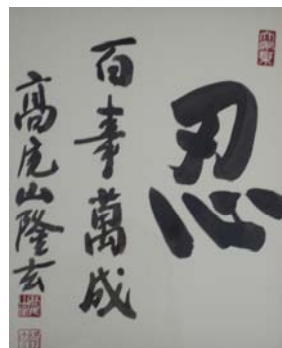 忍
百事萬成
高尾山隆玄